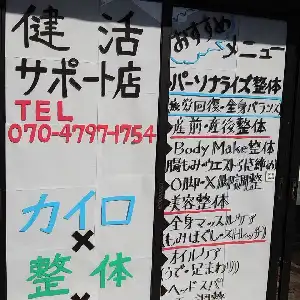 健活
サポート店
TEL
070-4797-1754
カイロ
×
整体
×
おすすめ
メニュー
パーソナライズ整体
疲労回復・全身バランス
産前・産後整体
Body Make整体
腸もみ・ウエスト
O脚・X脚調整
美容整体
全身マッスルケア
もみほぐし・ストレッチ
オイルケア
足まわり
ヘッドスパ